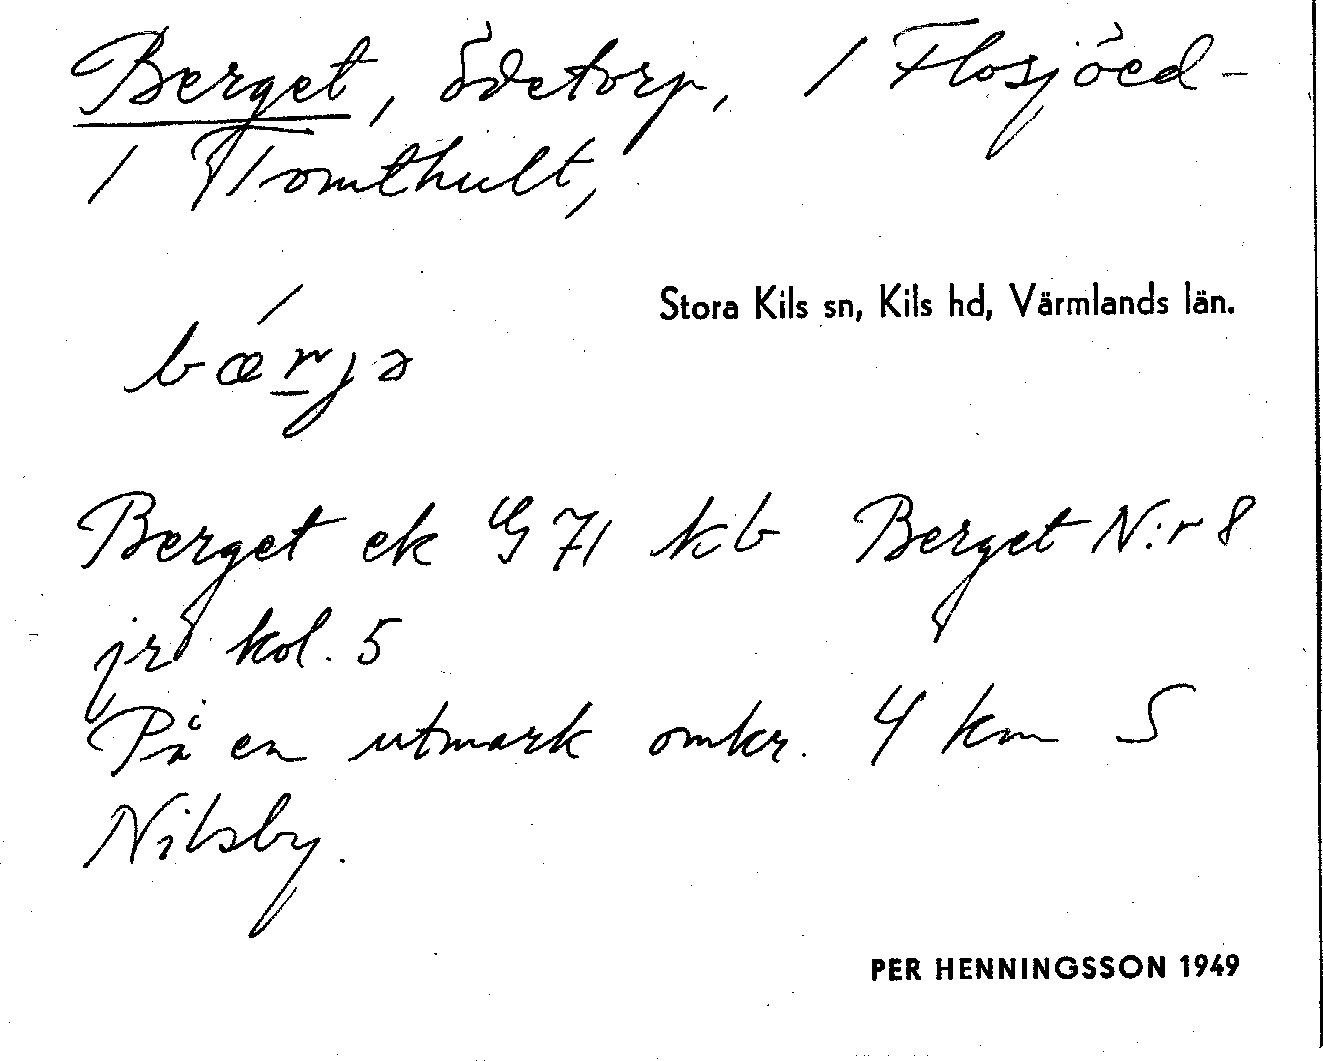 Berget, ödetorp, / Flosjöed-
/ Tomthult,
Stora Kils sn, Kils hd, Värmlands län.
bæ´rjə
Berget ek G 71 kb Berget N:r 8
jrd kol. 5
På en utmark omkr. 4 km S
Nilsby.
PER HENNINGSSON 1949